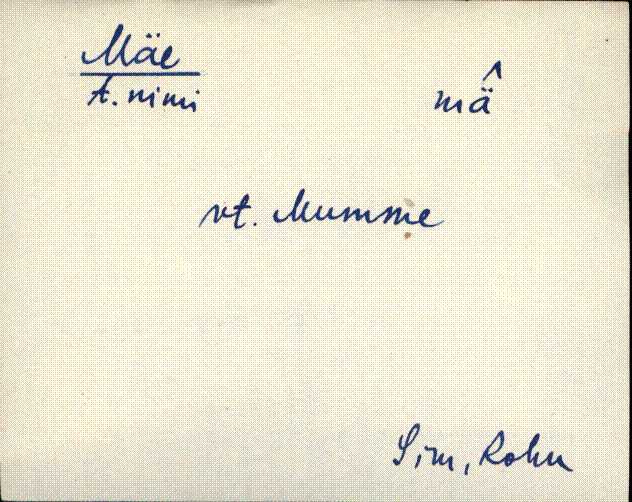 Mäe
t. nimi
mä̂
vt. Mumme
Sim, Rohu